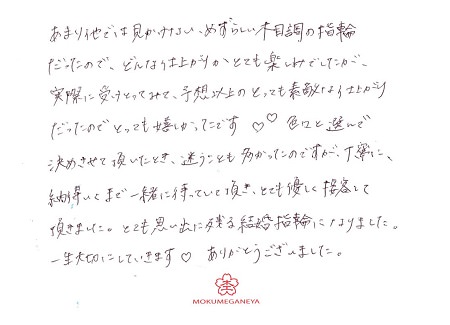 あまり他では見かけない、めずらしい木目調の指輪
だったので、どんな仕上がりかとても楽しみでしたが、
実際に受けとってみて、予想以上のとっても素敵な仕上がり
だったのでとっても嬉しかったです♡♡色々と選んで
決めさせて頂いたとき、迷うことも多かったのですが、丁寧に、
納得いくまで一緒に待っていて頂き、とても優しく接客して
頂きました。とても思い出に残る結婚指輪になりました。
一生大切にしていきます♡ ありがとうございました。
MOKUMEGANEYA